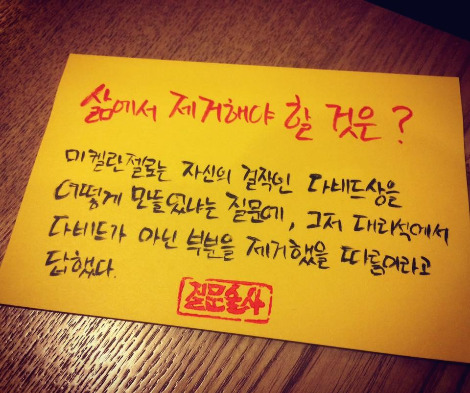 삶에서 제거해야 할 것은?
미켈란젤로는 자신의 걸작인 다비드상을
어떻게 만들었냐는 질문에, 그저 대리석에서
다비드가 아닌 부분을 제거했을 따름이라고
답했다.
질문술사